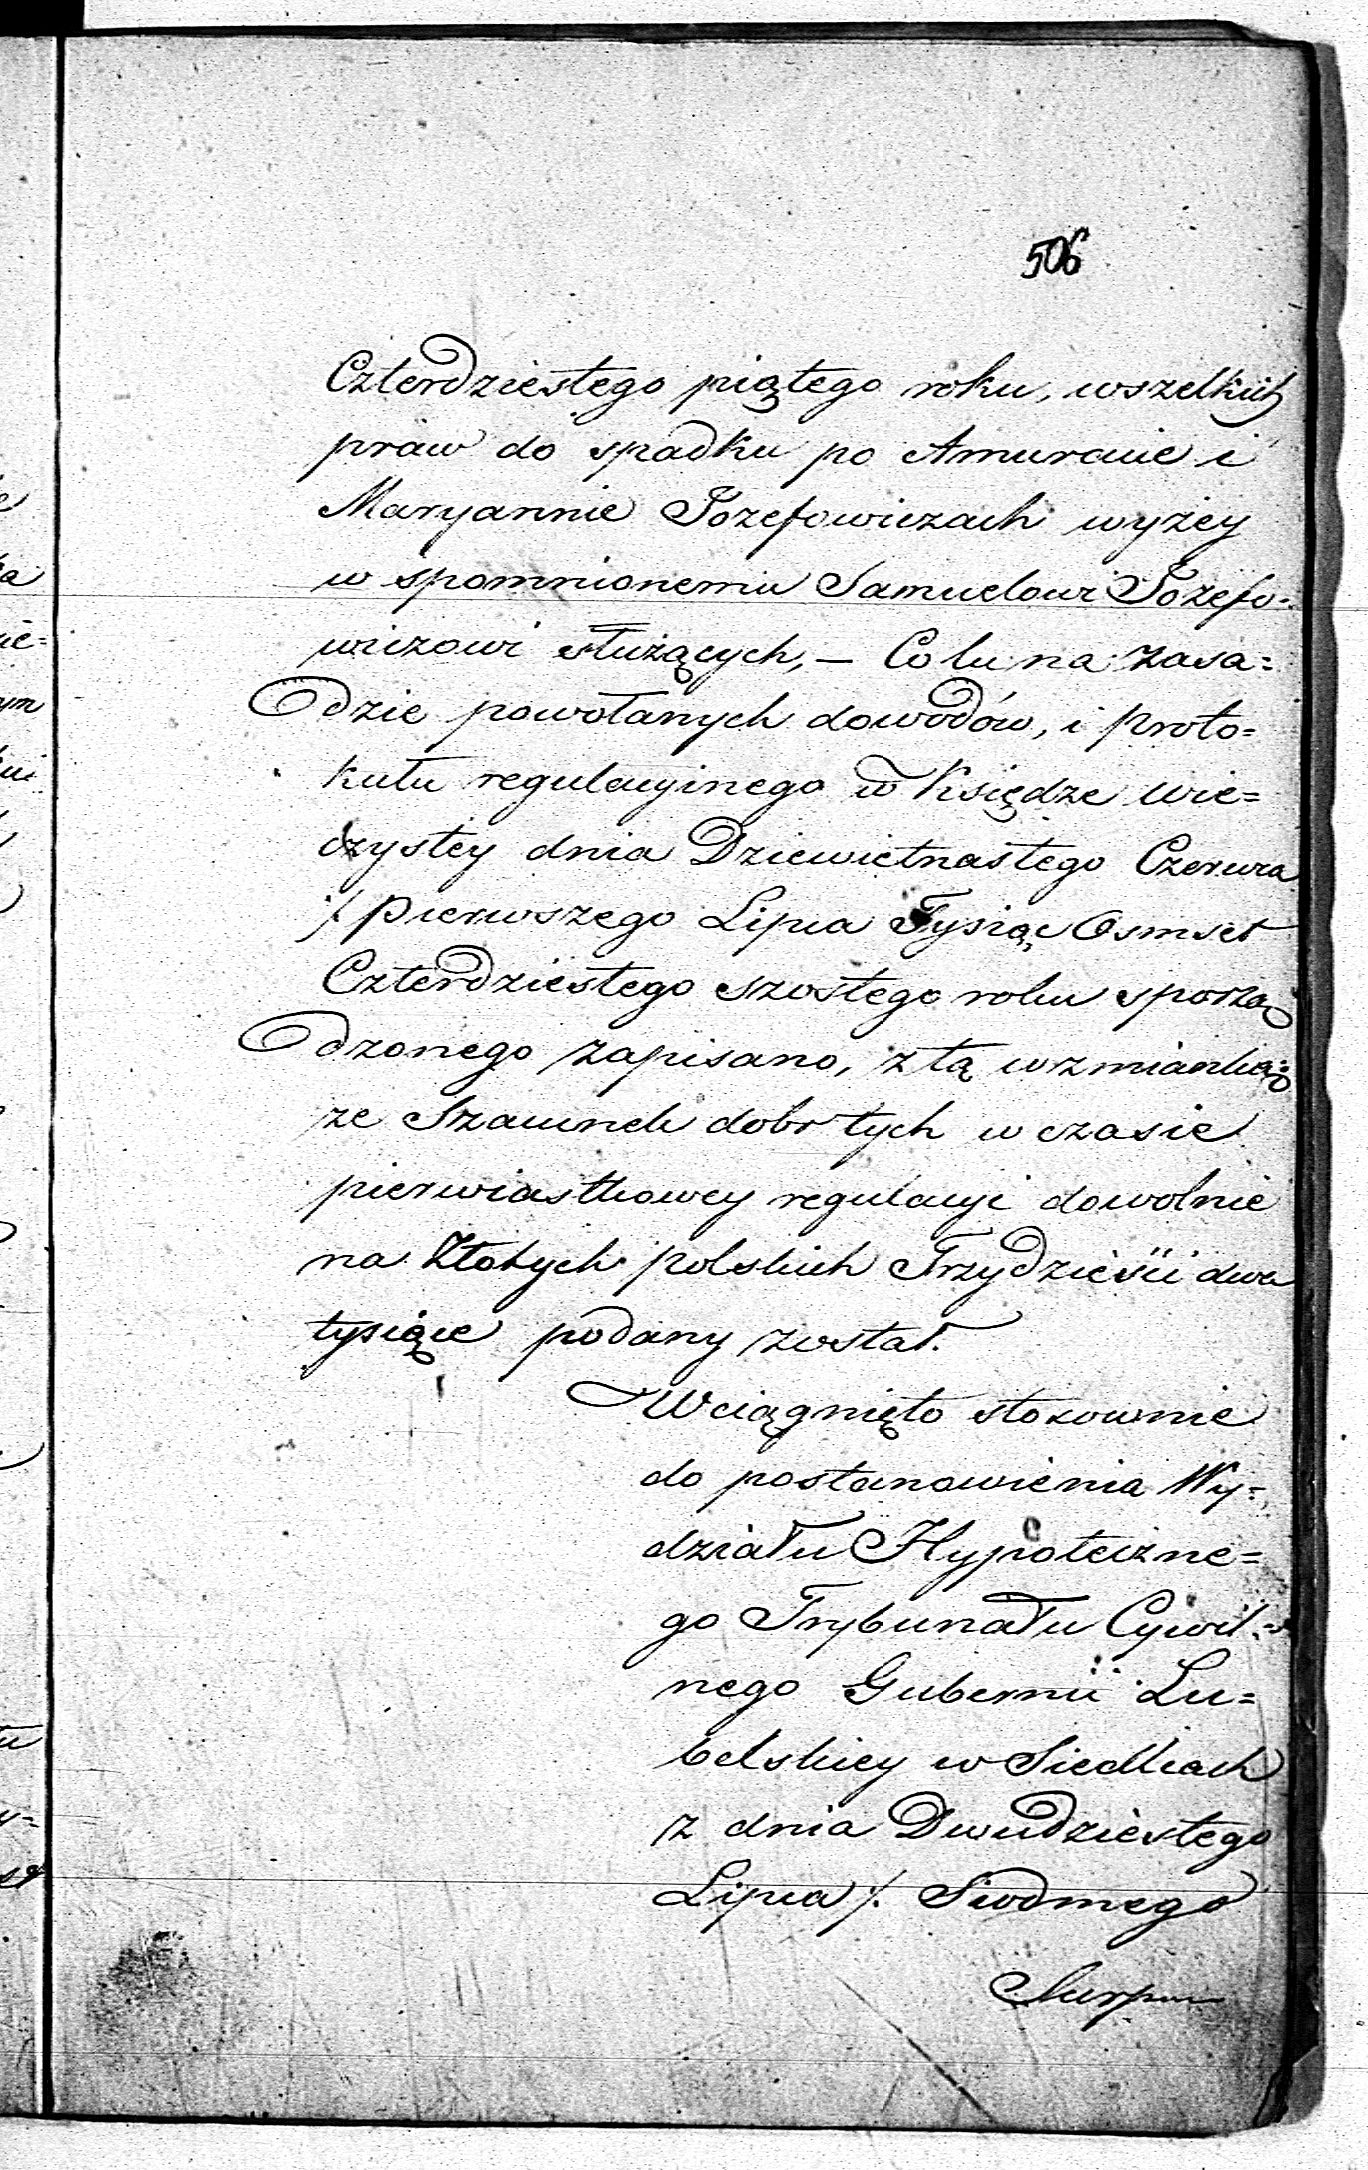 506
Czterdziestego piątego roku, wszelkich
praw do spadku po Amuracie i
Maryannie Jozefowiczach wyżey
w spomnionemu Samuelowi Jozefo=
wiczowi służących, — Co tu na zasa=
dzie powołanych dowodów, i proto=
kułu regulacyinego w Księdze wie=
czystey dnia Dziewietnastego Czerwca
/. Pierwszego Lipca Tysiąc Osmset
Czterdziestego szostego roku sporzą
dzonego zapisano, z tą wzmianką:
ze Szacunek dobr tych w czasie
pierwiastkowey regulacyi dowolnie
na Złotych polskich Trzydzieści dwa
tysiące podany został.
Wciągnięto stosownie
do postanowienia Wy=
działu Hypoteczne=
go Trybunału Cywil=
nego Gubernii Lu=
belskiey w Siedlcach
z dnia Dwudziestego
Lipca /. Siodmego
Sierpnia